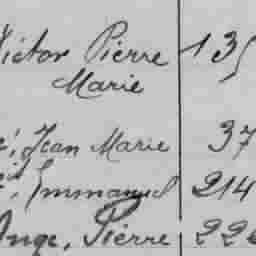 Victor Pierre 135
Marie
Jean Marie 37
Emmanuel 214
Ange, Pierre 226